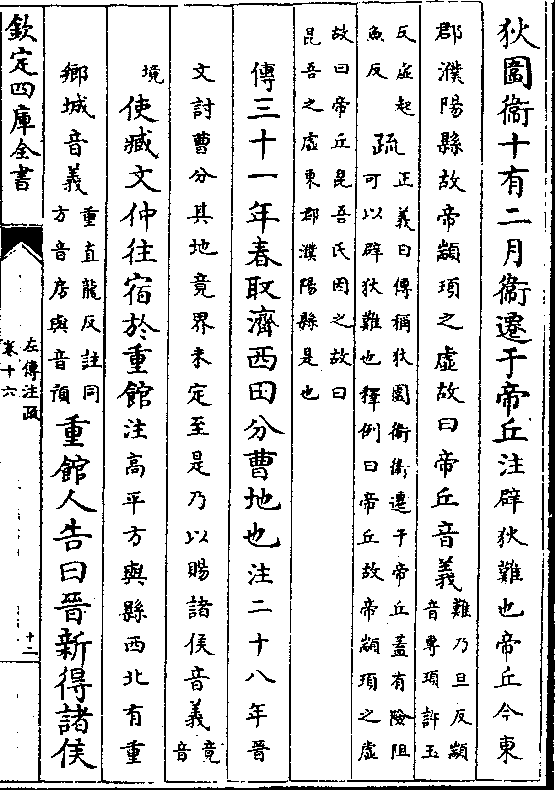 狄圍衞十有二月衞遷于帝丘注辟狄難也帝丘今東
郡濮陽縣故帝顓頊之虛故曰帝丘音義
難乃旦反顓
音專頊許玉
反虛起
魚反
疏
正義曰傳稱狄圍衞衞遷于帝丘蓋有險阻
可以辟狄難也釋例曰帝丘故帝顓頊之虛
故曰帝丘昆吾氏因之故曰
昆吾之虛東郡濮陽縣是也
傳三十一年春取濟西田分曹地也注二十八年晉
文討曹分其地竟界未定至是乃以賜諸侯音義
竟
音
境
使臧文仲往宿於重館注高平方與縣西北有重
鄉城音義
重直龍反註同
方音房與音預
重館人告曰晉新得諸侯
欽定四庫全書
左傳注疏
卷十六
十二